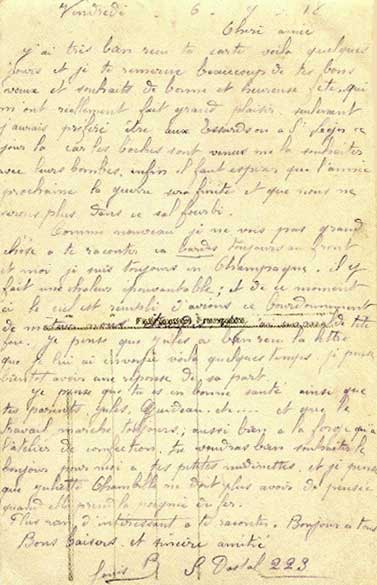 Vendredi 6
Cheri amie
j'ai très bien recu ta carte voilà quelques
jours et je te remercie beaucoup de tes bons
voeux et souhaits de bonne et heureuse fête, qui
m'ont réellement fait grand plaisir. seulement
j'aurais preferé être aux Essards ou a l'
jour là car les boches sont venus me la souhaiter
avec leurs bombes. enfin il faut esperer que l'année
prochaine la guerre sera finite et que nous ne
serons plus dans ce sal fourbi.
Comme nouveau je ne vois pas grand
chose a te raconter ca barde toujours au front
et moi je suis toujours en Champagne. il y
fait une chaleur epouvantable; et de ce moment
ci le ciel est rempli d'avions ce bourdonnement
de
je pense que jules a bien recu la lettre
que je lui ai envoyée voilà quelques temps. je pense
bientot avoir une réponse de sa part.
je pense que tu es en bonne santé ainsi que
tes parents, jules, etc... et que le
travail marche toujours; aussi bien a la forge qu'a
l'atelier de confection. tu voudras bien souhaiter le
bonjour pour moi a tes petites midinettes, et je pense
que juliette ne doit plus avoir de pensée
quand elle prend la poignée du fer.
Plus rien d'interessant a te raconter. Bonjour a tous
Bons baisers et sincère amitié
Louis P S Postal 223